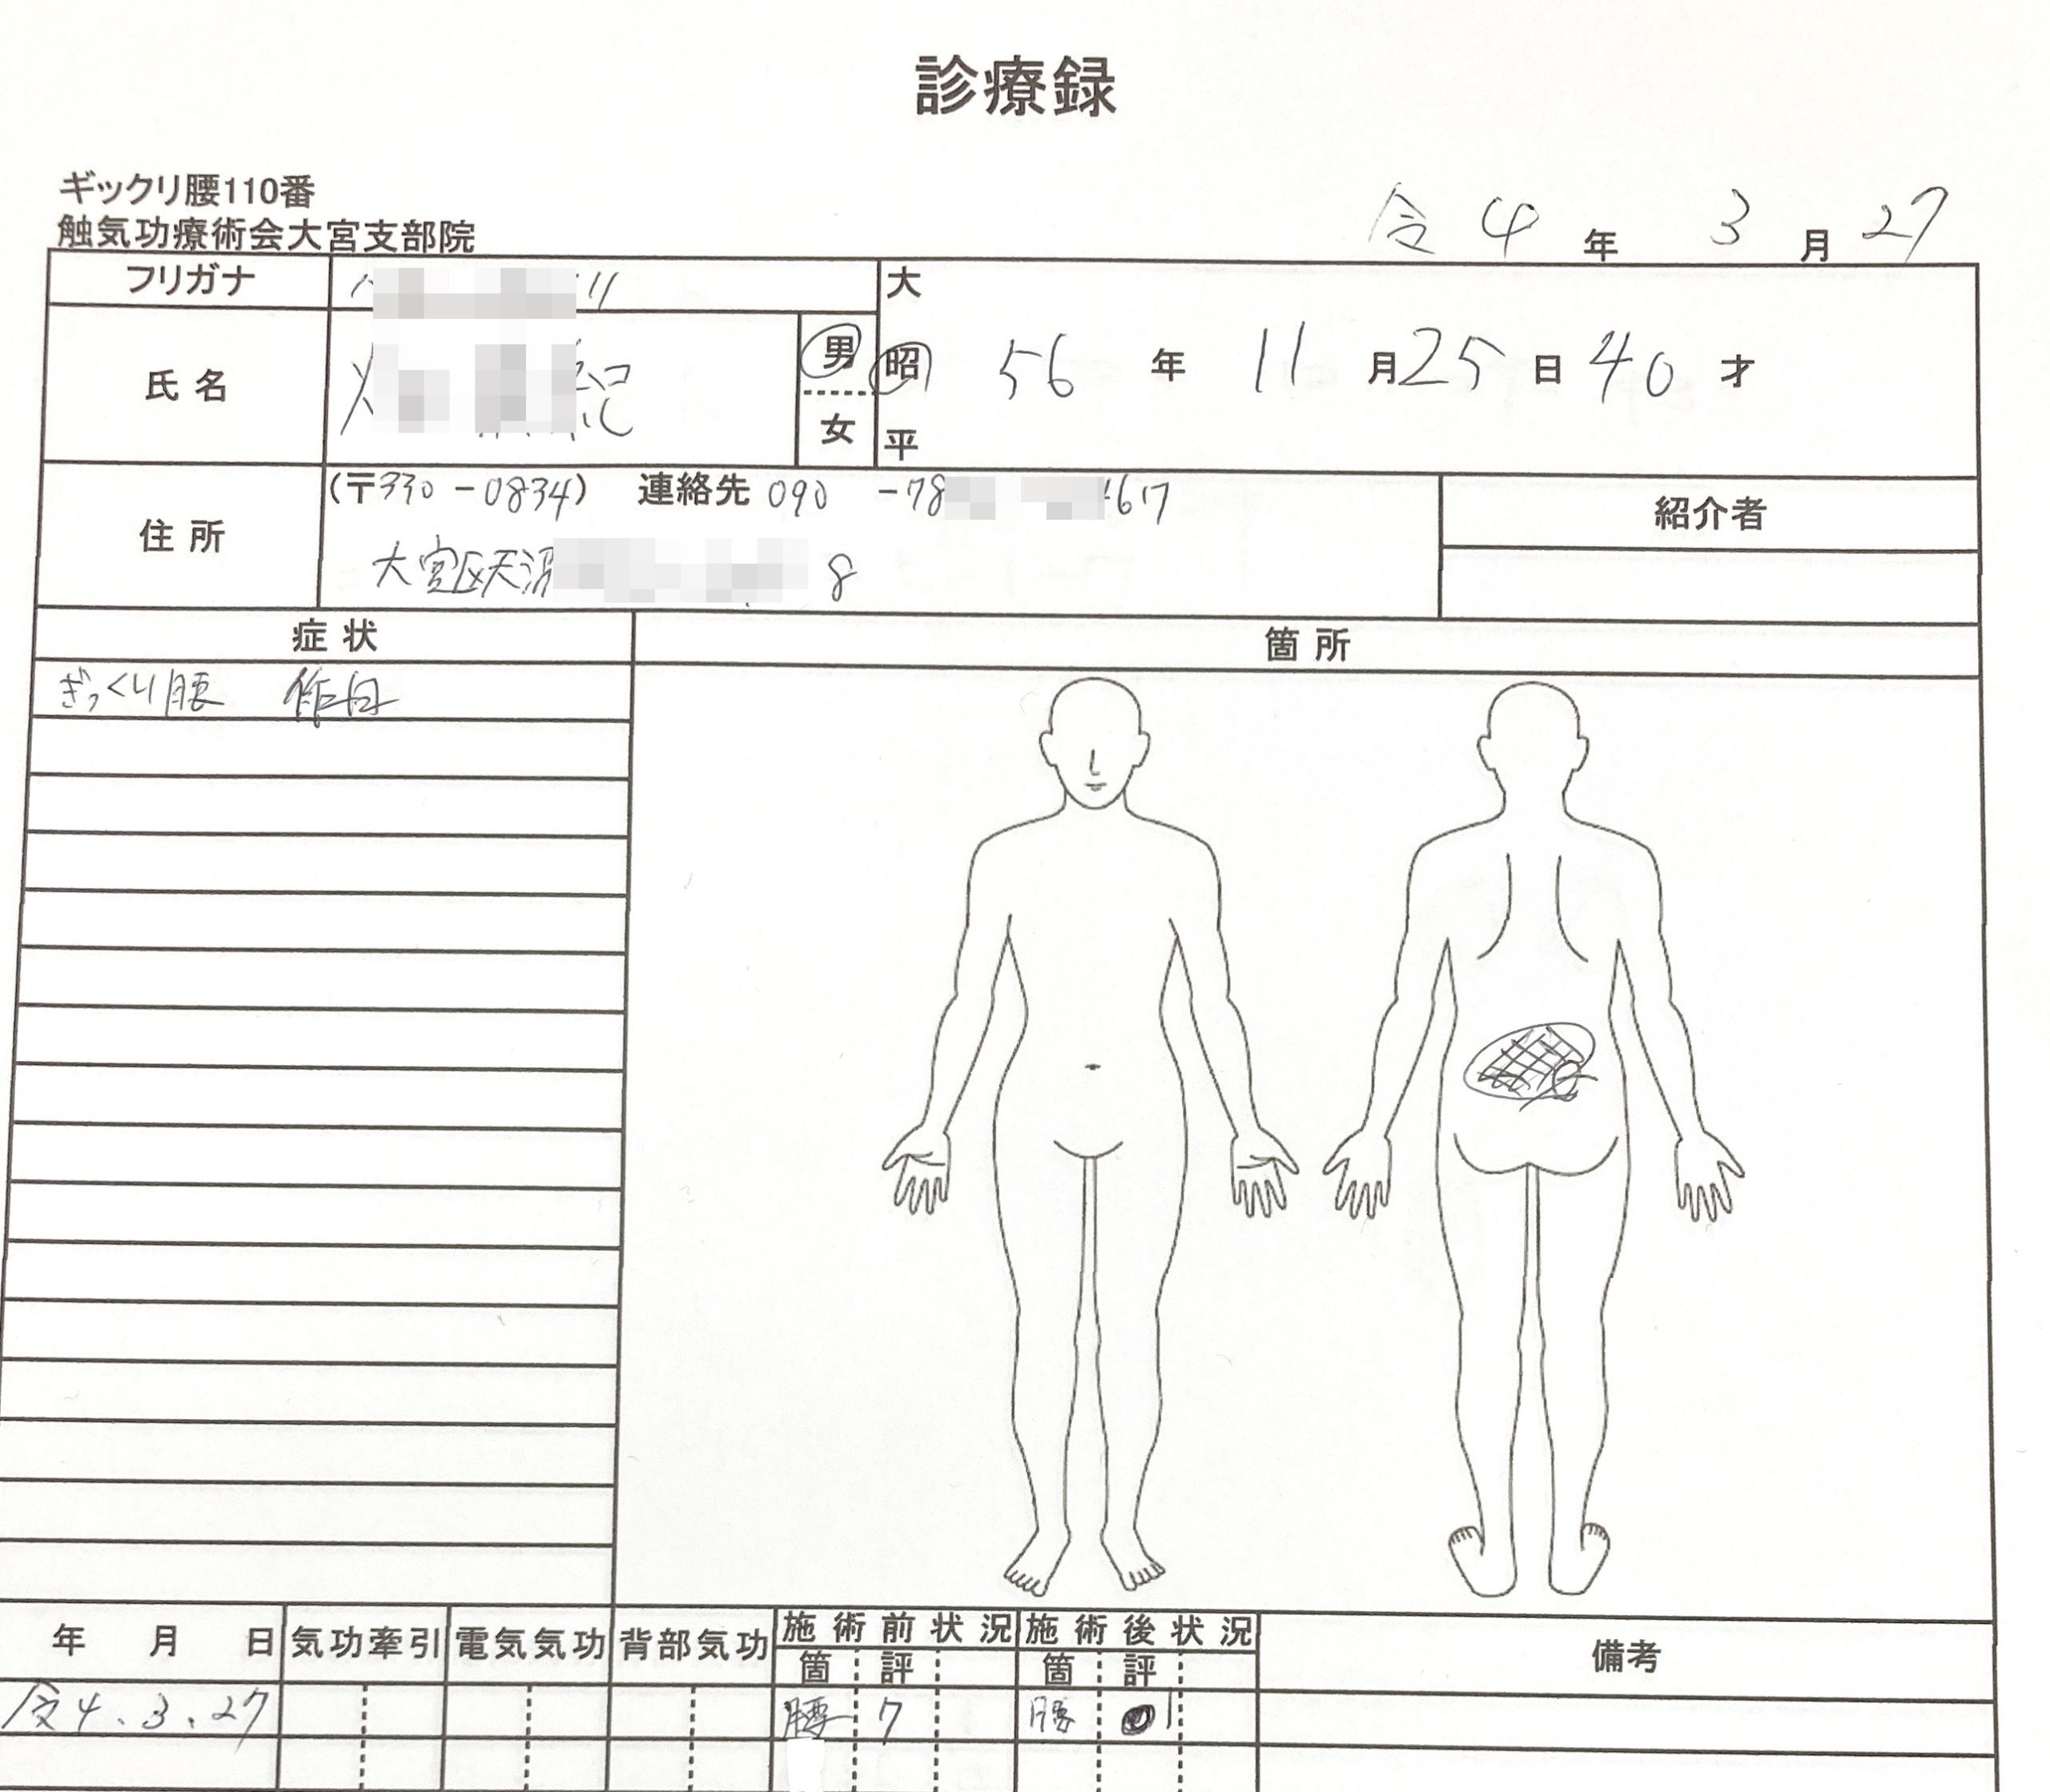 診療録
ギックリ腰110番
触気功療術会大宮支部院
令 4 年 3 月 27
フリガナ リ
氏名 紀 男 女
大 昭 平 56 年 11 月 25 日 40 才
住所 (〒330-0834) 連絡先 090 -78 617
大宮区天沼 8
紹介者
症状 箇所
ぎっくり腰 昨日
年 月 日 気功牽引 電気気功 背部気功 施術前状況 施術後状況 備考
箇 評 箇 評
令4.3.27 腰 7 腰 1